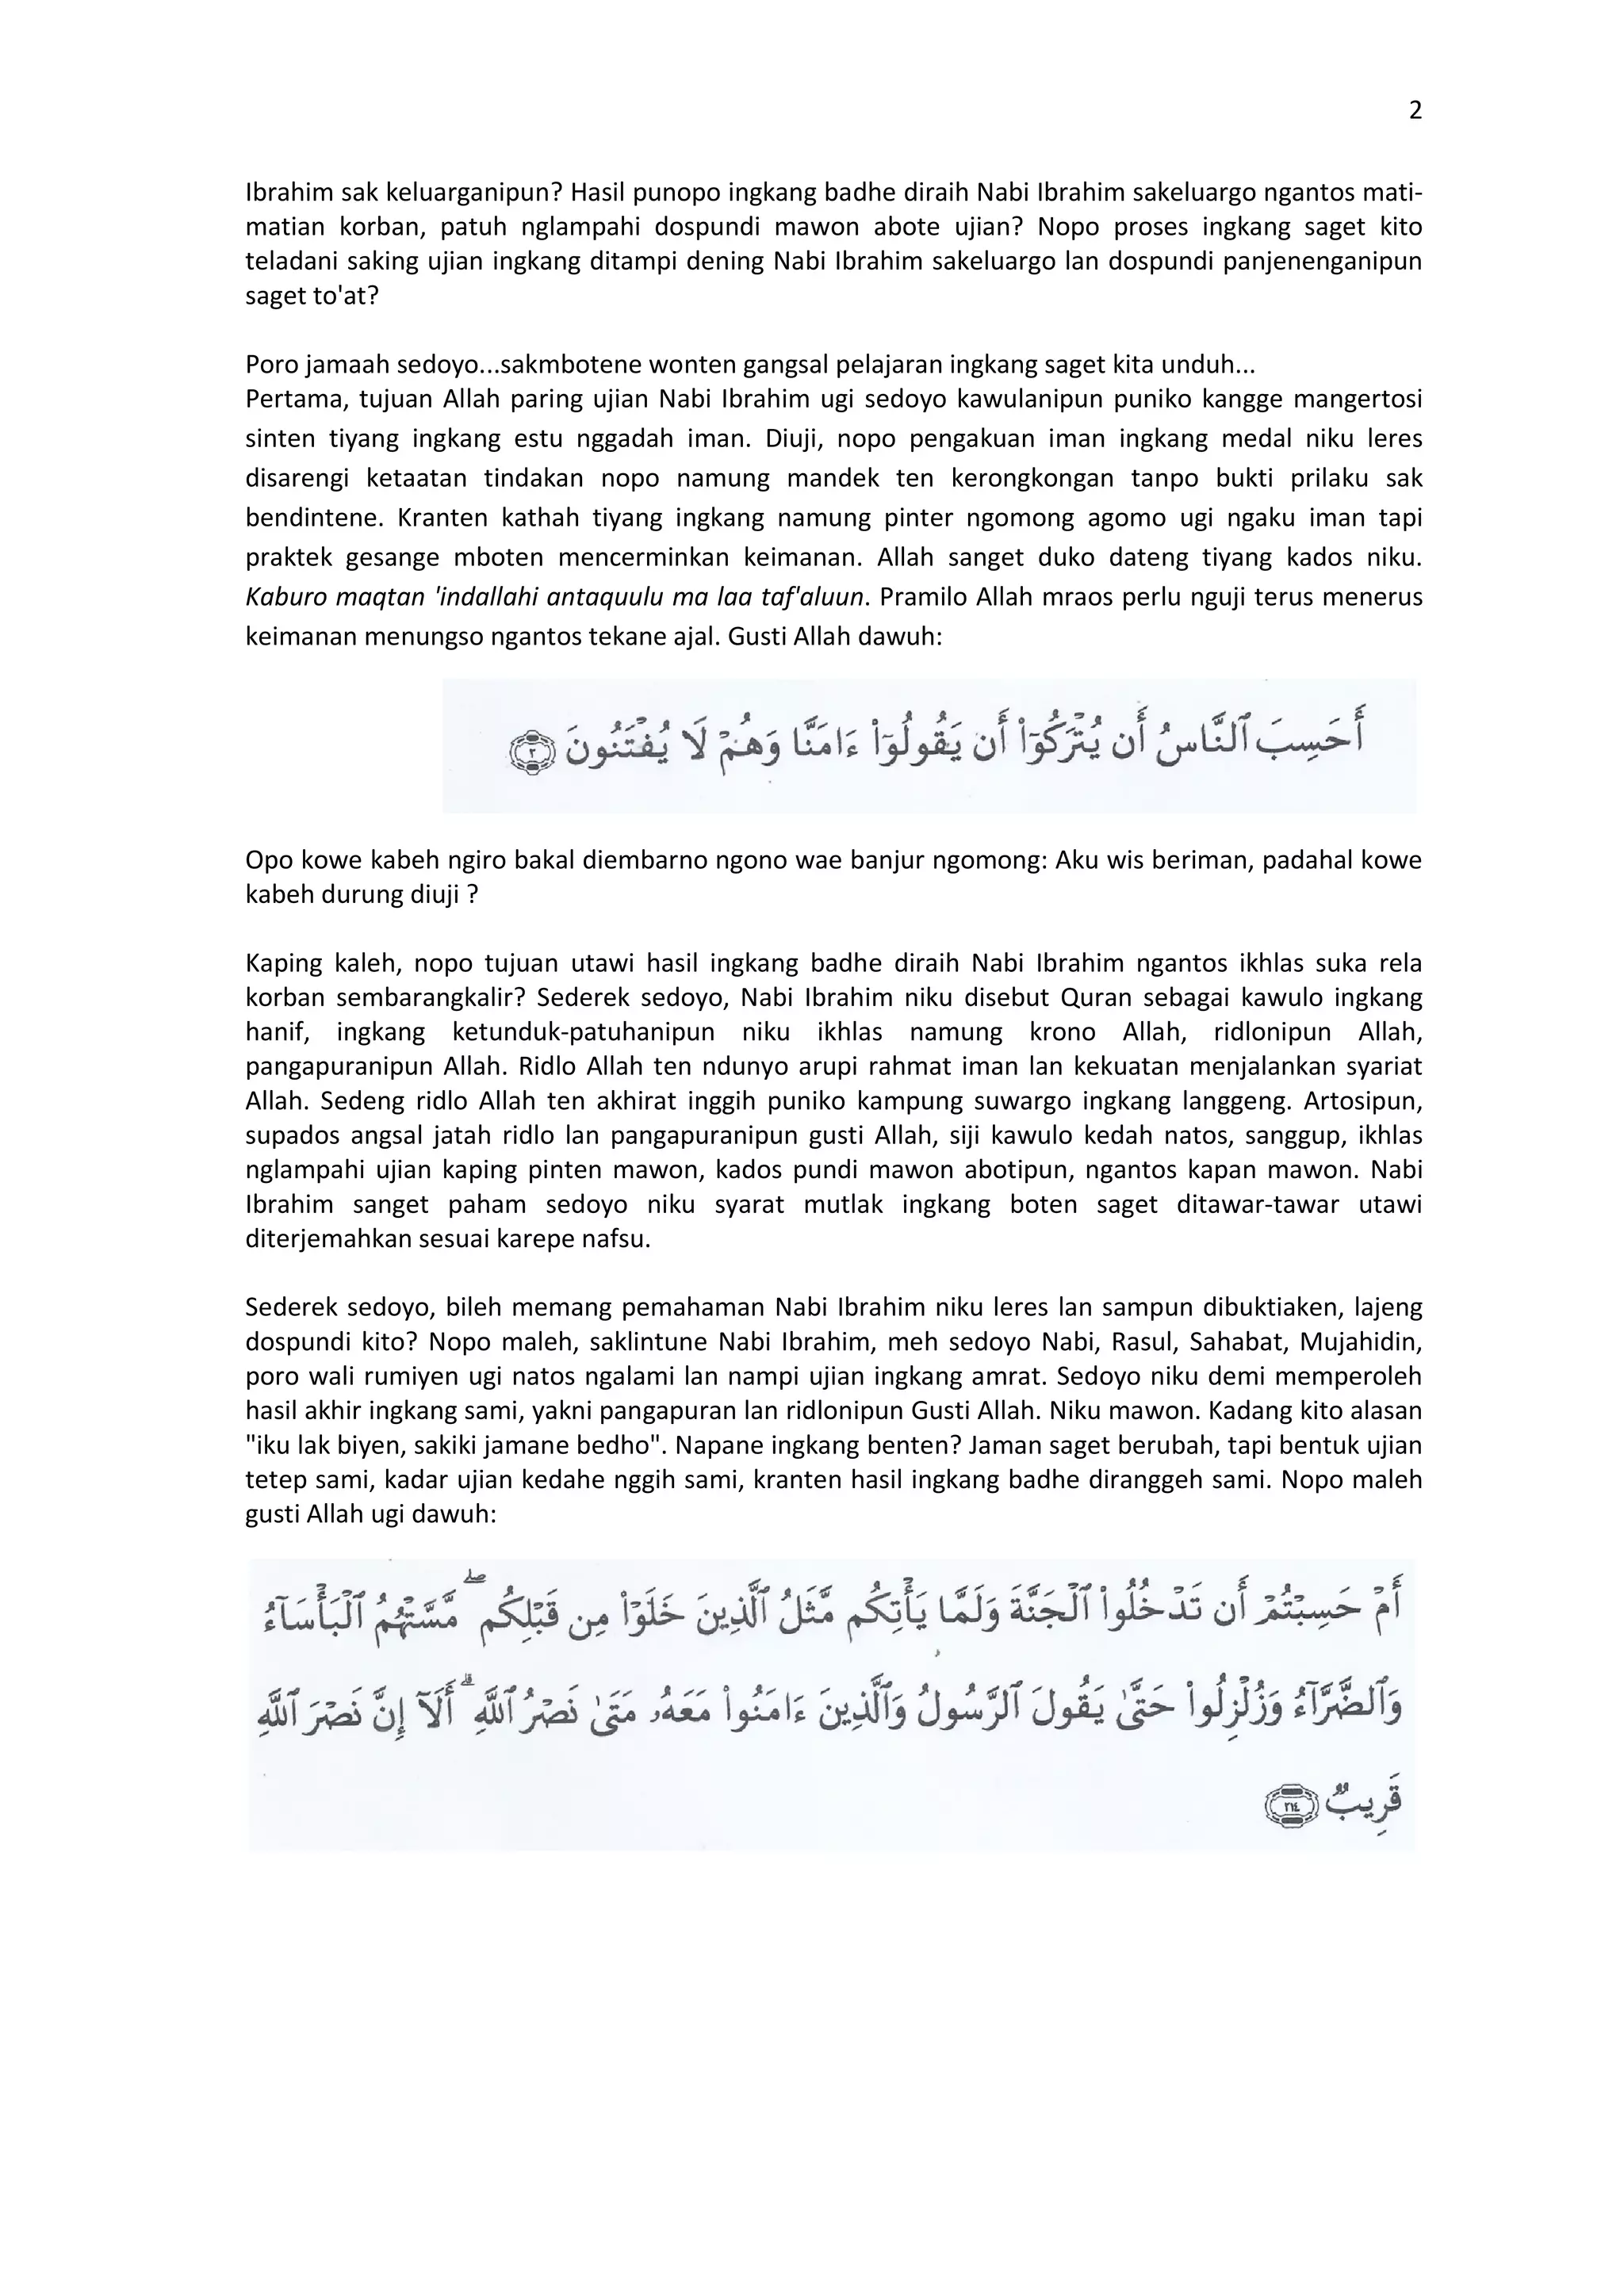 2
Ibrahim sak keluarganipun? Hasil punopo ingkang badhe diraih Nabi Ibrahim sakeluargo ngantos mati-
matian korban, patuh nglampahi dospundi mawon abote ujian? Nopo proses ingkang saget kito
teladani saking ujian ingkang ditampi dening Nabi Ibrahim sakeluargo lan dospundi panjenenganipun
saget to'at?
Poro jamaah sedoyo...sakmbotene wonten gangsal pelajaran ingkang saget kita unduh...
Pertama, tujuan Allah paring ujian Nabi Ibrahim ugi sedoyo kawulanipun puniko kangge mangertosi
sinten tiyang ingkang estu nggadah iman. Diuji, nopo pengakuan iman ingkang medal niku leres
disarengi ketaatan tindakan nopo namung mandek ten kerongkongan tanpo bukti prilaku sak
bendintene. Kranten kathah tiyang ingkang namung pinter ngomong agomo ugi ngaku iman tapi
praktek gesange mboten mencerminkan keimanan. Allah sanget duko dateng tiyang kados niku.
Kaburo maqtan 'indallahi antaquulu ma laa taf'aluun. Pramilo Allah mraos perlu nguji terus menerus
keimanan menungso ngantos tekane ajal. Gusti Allah dawuh:
أَحَسِبَ ٱلنَّاسُ أَن يُتْرَكُوٓا۟ أَن يَقُولُوٓا۟ ءَامَنَّا وَهُمْ لَا يُفْتَنُونَ ٢
Opo kowe kabeh ngiro bakal diembarno ngono wae banjur ngomong: Aku wis beriman, padahal kowe
kabeh durung diuji ?
Kaping kaleh, nopo tujuan utawi hasil ingkang badhe diraih Nabi Ibrahim ngantos ikhlas suka rela
korban sembarangkalir? Sederek sedoyo, Nabi Ibrahim niku disebut Quran sebagai kawulo ingkang
hanif, ingkang ketunduk-patuhanipun niku ikhlas namung krono Allah, ridlonipun Allah,
pangapuranipun Allah. Ridlo Allah ten ndunyo arupi rahmat iman lan kekuatan menjalankan syariat
Allah. Sedeng ridlo Allah ten akhirat inggih puniko kampung suwargo ingkang langgeng. Artosipun,
supados angsal jatah ridlo lan pangapuranipun gusti Allah, siji kawulo kedah natos, sanggup, ikhlas
nglampahi ujian kaping pinten mawon, kados pundi mawon abotipun, ngantos kapan mawon. Nabi
Ibrahim sanget paham sedoyo niku syarat mutlak ingkang boten saget ditawar-tawar utawi
diterjemahkan sesuai karepe nafsu.
Sederek sedoyo, bileh memang pemahaman Nabi Ibrahim niku leres lan sampun dibuktiaken, lajeng
dospundi kito? Nopo maleh, saklintune Nabi Ibrahim, meh sedoyo Nabi, Rasul, Sahabat, Mujahidin,
poro wali rumiyen ugi natos ngalami lan nampi ujian ingkang amrat. Sedoyo niku demi memperoleh
hasil akhir ingkang sami, yakni pangapuran lan ridlonipun Gusti Allah. Niku mawon. Kadang kito alasan
"iku lak biyen, sakiki jamane bedho". Napane ingkang benten? Jaman saget berubah, tapi bentuk ujian
tetep sami, kadar ujian kedahe nggih sami, kranten hasil ingkang badhe diranggeh sami. Nopo maleh
gusti Allah ugi dawuh:
أَمْ حَسِبْتُمْ أَن تَدْخُلُوا۟ ٱلْجَنَّةَ وَلَمَّا يَأْتِكُم مَّثَلُ ٱلَّذِينَ خَلَوْا۟ مِن قَبْلِكُم ۖ مَّسَّتْهُمُ ٱلْبَأْسَآءُ
وَٱلضَّرَّآءُ وَزُلْزِلُوا۟ حَتَّىٰ يَقُولَ ٱلرَّسُولُ وَٱلَّذِينَ ءَامَنُوا۟ مَعَهُۥ مَتَىٰ نَصْرُ ٱللَّهِ ۗ أَلَآ إِنَّ نَصْرَ ٱللَّهِ
قَرِيبٌ ٢١٤